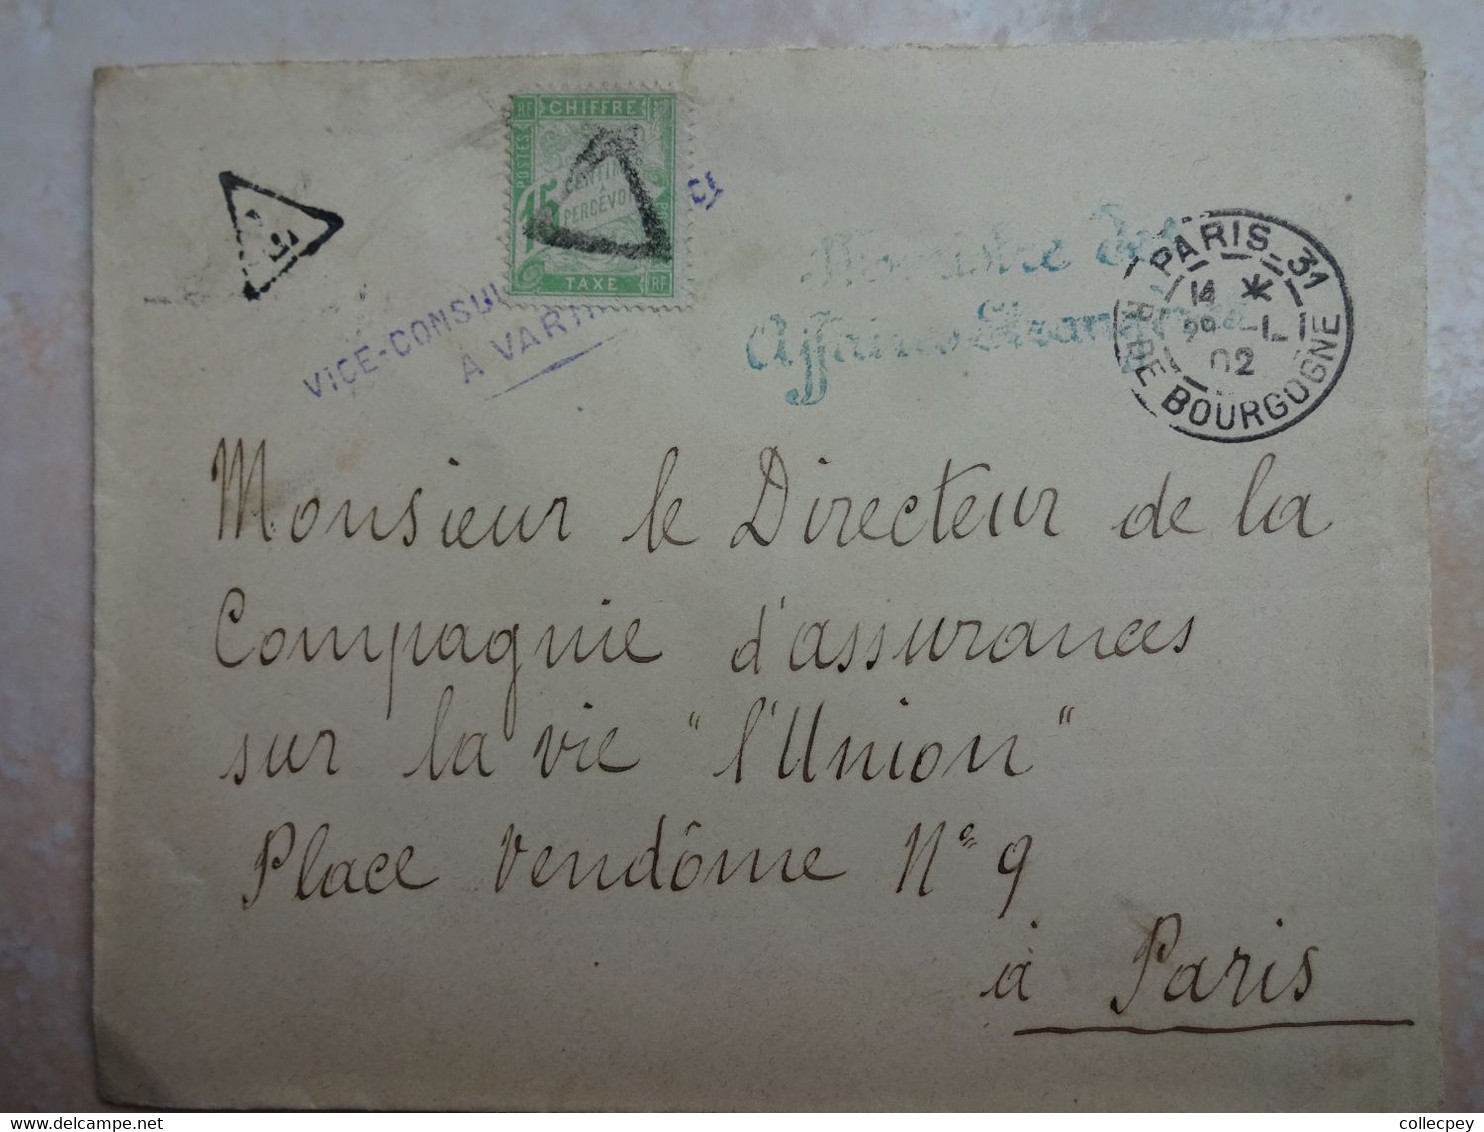 RF CHIFFRE
POSTES
15 CENTIM
A
PERCEVOI
TAXE RF
T
VICE-CONSU
A VAR
Ministre des
Affaires Etrangères
PARIS-31
14 *
29 -1
02
R. DE BOURGOGNE
Monsieur le Directeur de la
Compagnie d'assurances
sur la vie "l'Union"
Place Vendôme N° 9
à Paris
delcampe.net
collecpey